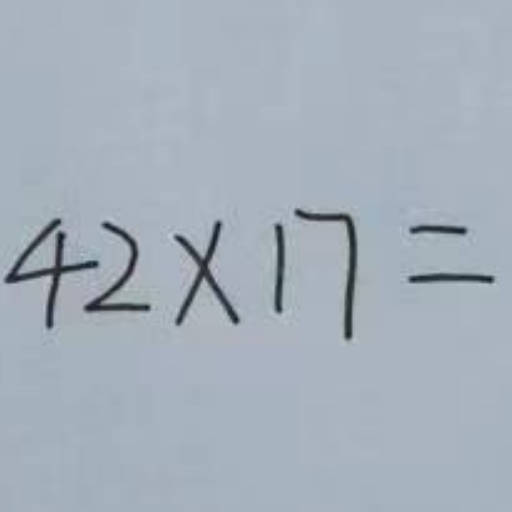 42×17=